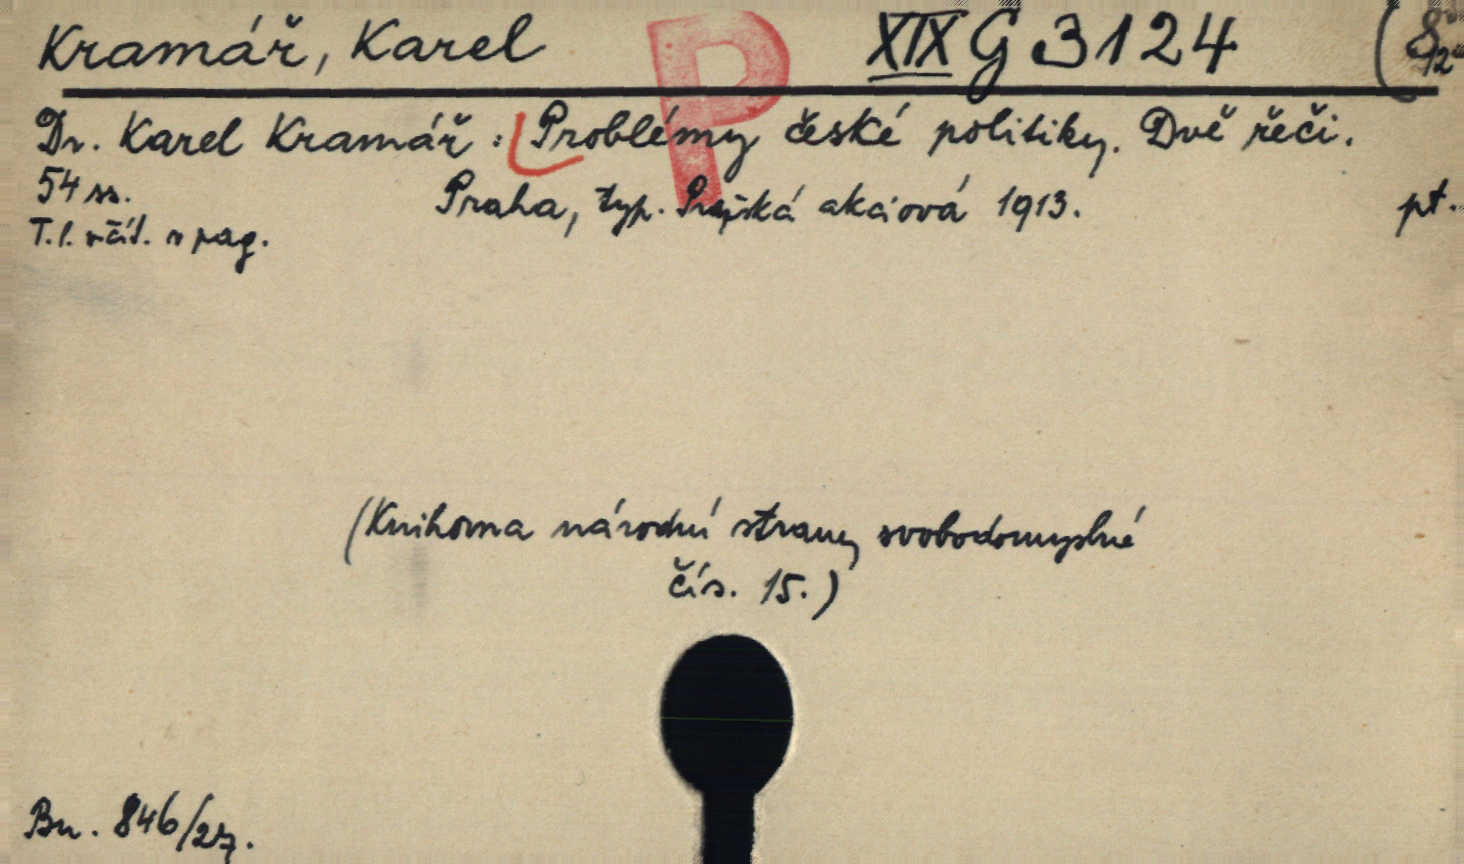 Kramář, Karel XIX G 3124 (8°
P
Dr. Karel Kramář: Problémy české politiky. Dvě řeči.
54 ss. Praha, typ. Pražská akciová 1913. pt.
T. l. včít. v pag.
(Knihovna národní strany svobodomyslné
čís. 15.)
Bn. 846/27.